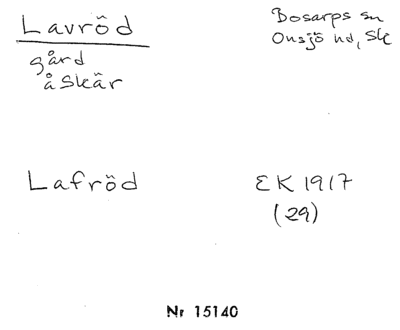 Lavröd
gård
å Skär
Bosarps sn
Onsjö hd, Sk
Lafröd
EK 1917
(29)
Nr 15140